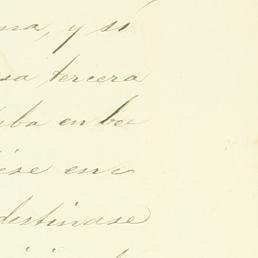 na, y si
sa tercera
iba en be
ese en
destinase